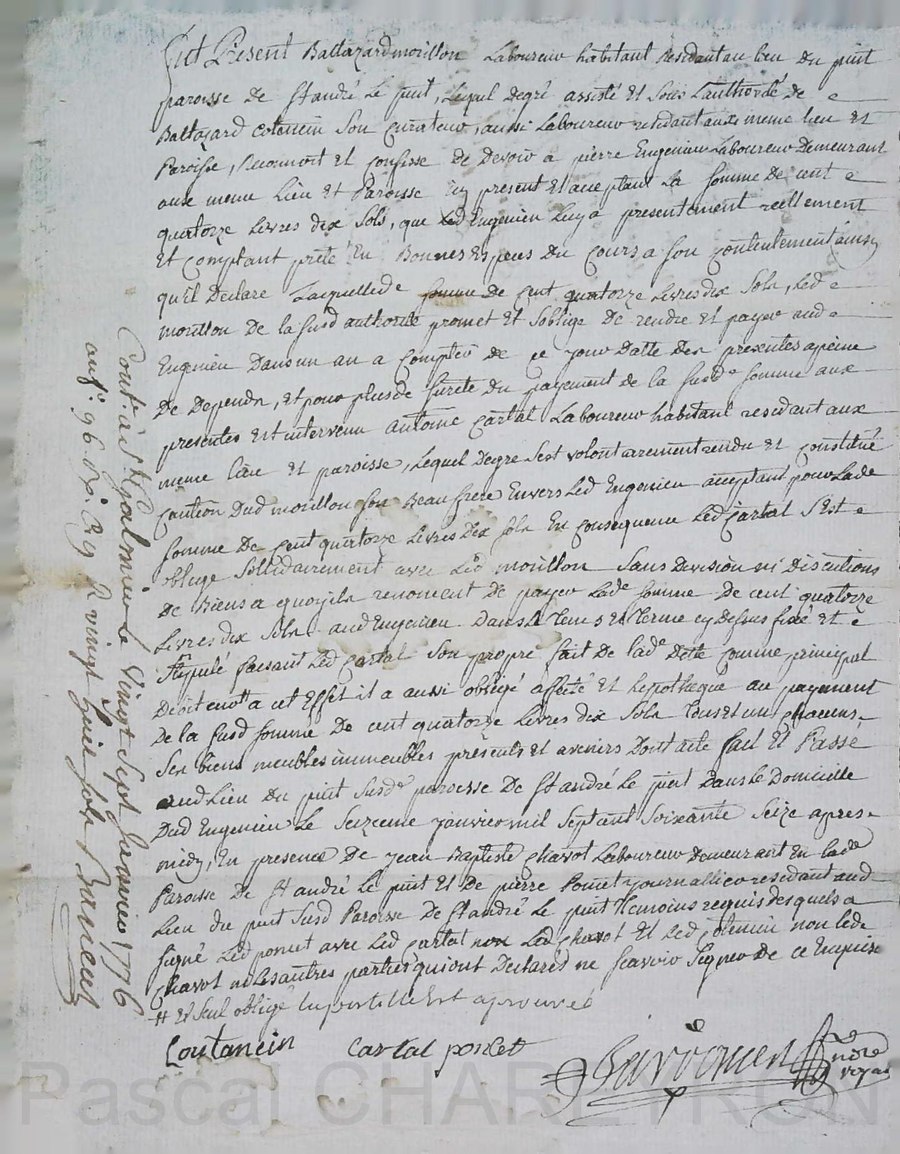 fut Présent Baltazard morillon Laboureur habitant Residant au lieu du puit
paroisse de St andré Le puit, Lequel degré assisté et sous L'authorité de
Baltazard Cotancin son Curateur, aussi Laboureur residant aud meme lieu et
Paroisse, reconnoit et confesse de Devoir a pierre Eugenieu Laboureur Demeurant
aux meme Lieu et Paroisse icy present et acceptant La somme De cent
quatorze Livres dix sols, que Led Eugenieu Luy a presentement réellement
Et comptant prété En Bonnes Especes du Cours a son contentement ainsy
qu'il Declare Laquelle de somme de cent quatorze Livres dix sols, Led
morillon de la susd authorité promet et soblige De rendre et payer aud
Eugenieu Dans un an a Compter de ce jour Datte des presentes apeine
De Depends, et pour plus de sureté du payement de la susd.e somme aux
presentes est intervenu antoine Cartal Laboureur habitant residant aux
meme Lieu et paroisse, Lequel Degre s'est volontairement rendu et constitué
Caution Dud morillon son Beau frere Envers Led Eugenieu acceptant pour Lade
somme De Cent quatorze Livres Dix sols En consequence Led Cartal s'est
obligé sollidairement avec Led morillon sans Division ni discutions
De Biens a quoy ils renoncent De payer Lad.e somme De cent quatorze
Livres dix sols aud Eugenieu Dans le tems et terme cy dessus fixé et
stipulé faisant Led Cartal son propre fait de lad.e Dette Comme principal
a cet Effet il a aussi obligé affecté et hipothequé au payement
De la susd somme De cent quatorze Livres dix sols tous et un chacuns
Ses biens meubles immeubles presents et avenirs Dont acte fait et Passé
aud Lieu Du puit susd.e paroisse De St andré Le puit Dans le Domicille
Dud Eugenieu Le seizeme janvier mil septant soixante seize apres
midy, En presence De jean Baptiste Chavot Laboureur Demeurant En lad.e
Paroisse De St andré Le puit et De pierre Poncet journallier residant aud
Lieu du puit susd Paroisse De St andré Le puit temoins requis Desquels a
signé Led poncet avec Led Cartal Led Chavot et Led Cotancin non led
Chavot ni Les autres parties qui ont Declarés ne scavoir signer de ce Enquis
# et seul obligé La postille Est aprouvée
Coutancin Cartal poncet
no.re royal
Cont.lé a St Galmier Le vingt sept Janvier 1776
R vingt sols